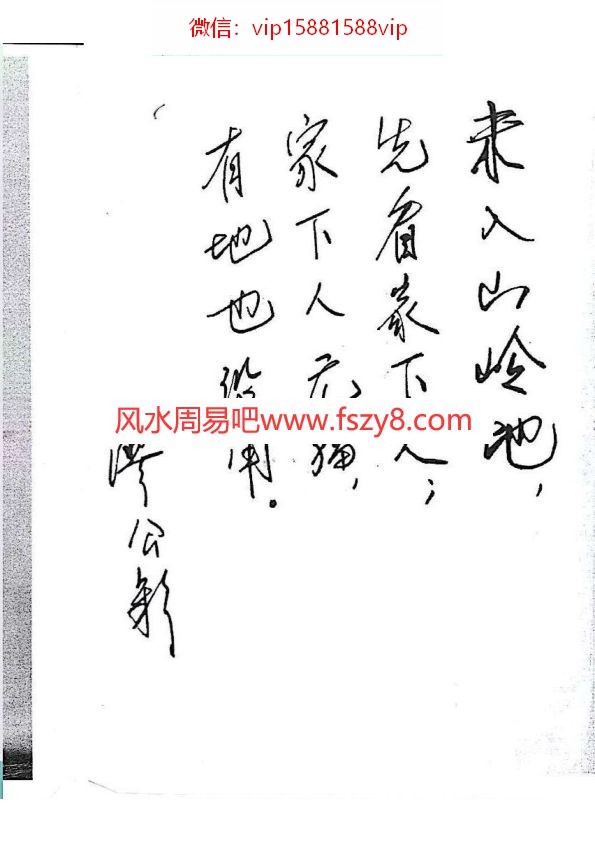 微信：vip15881588vip
未入山岭池，
先看家下人；
家下人无福，
有地也没用。
风水周易吧www.fszy8.com
公